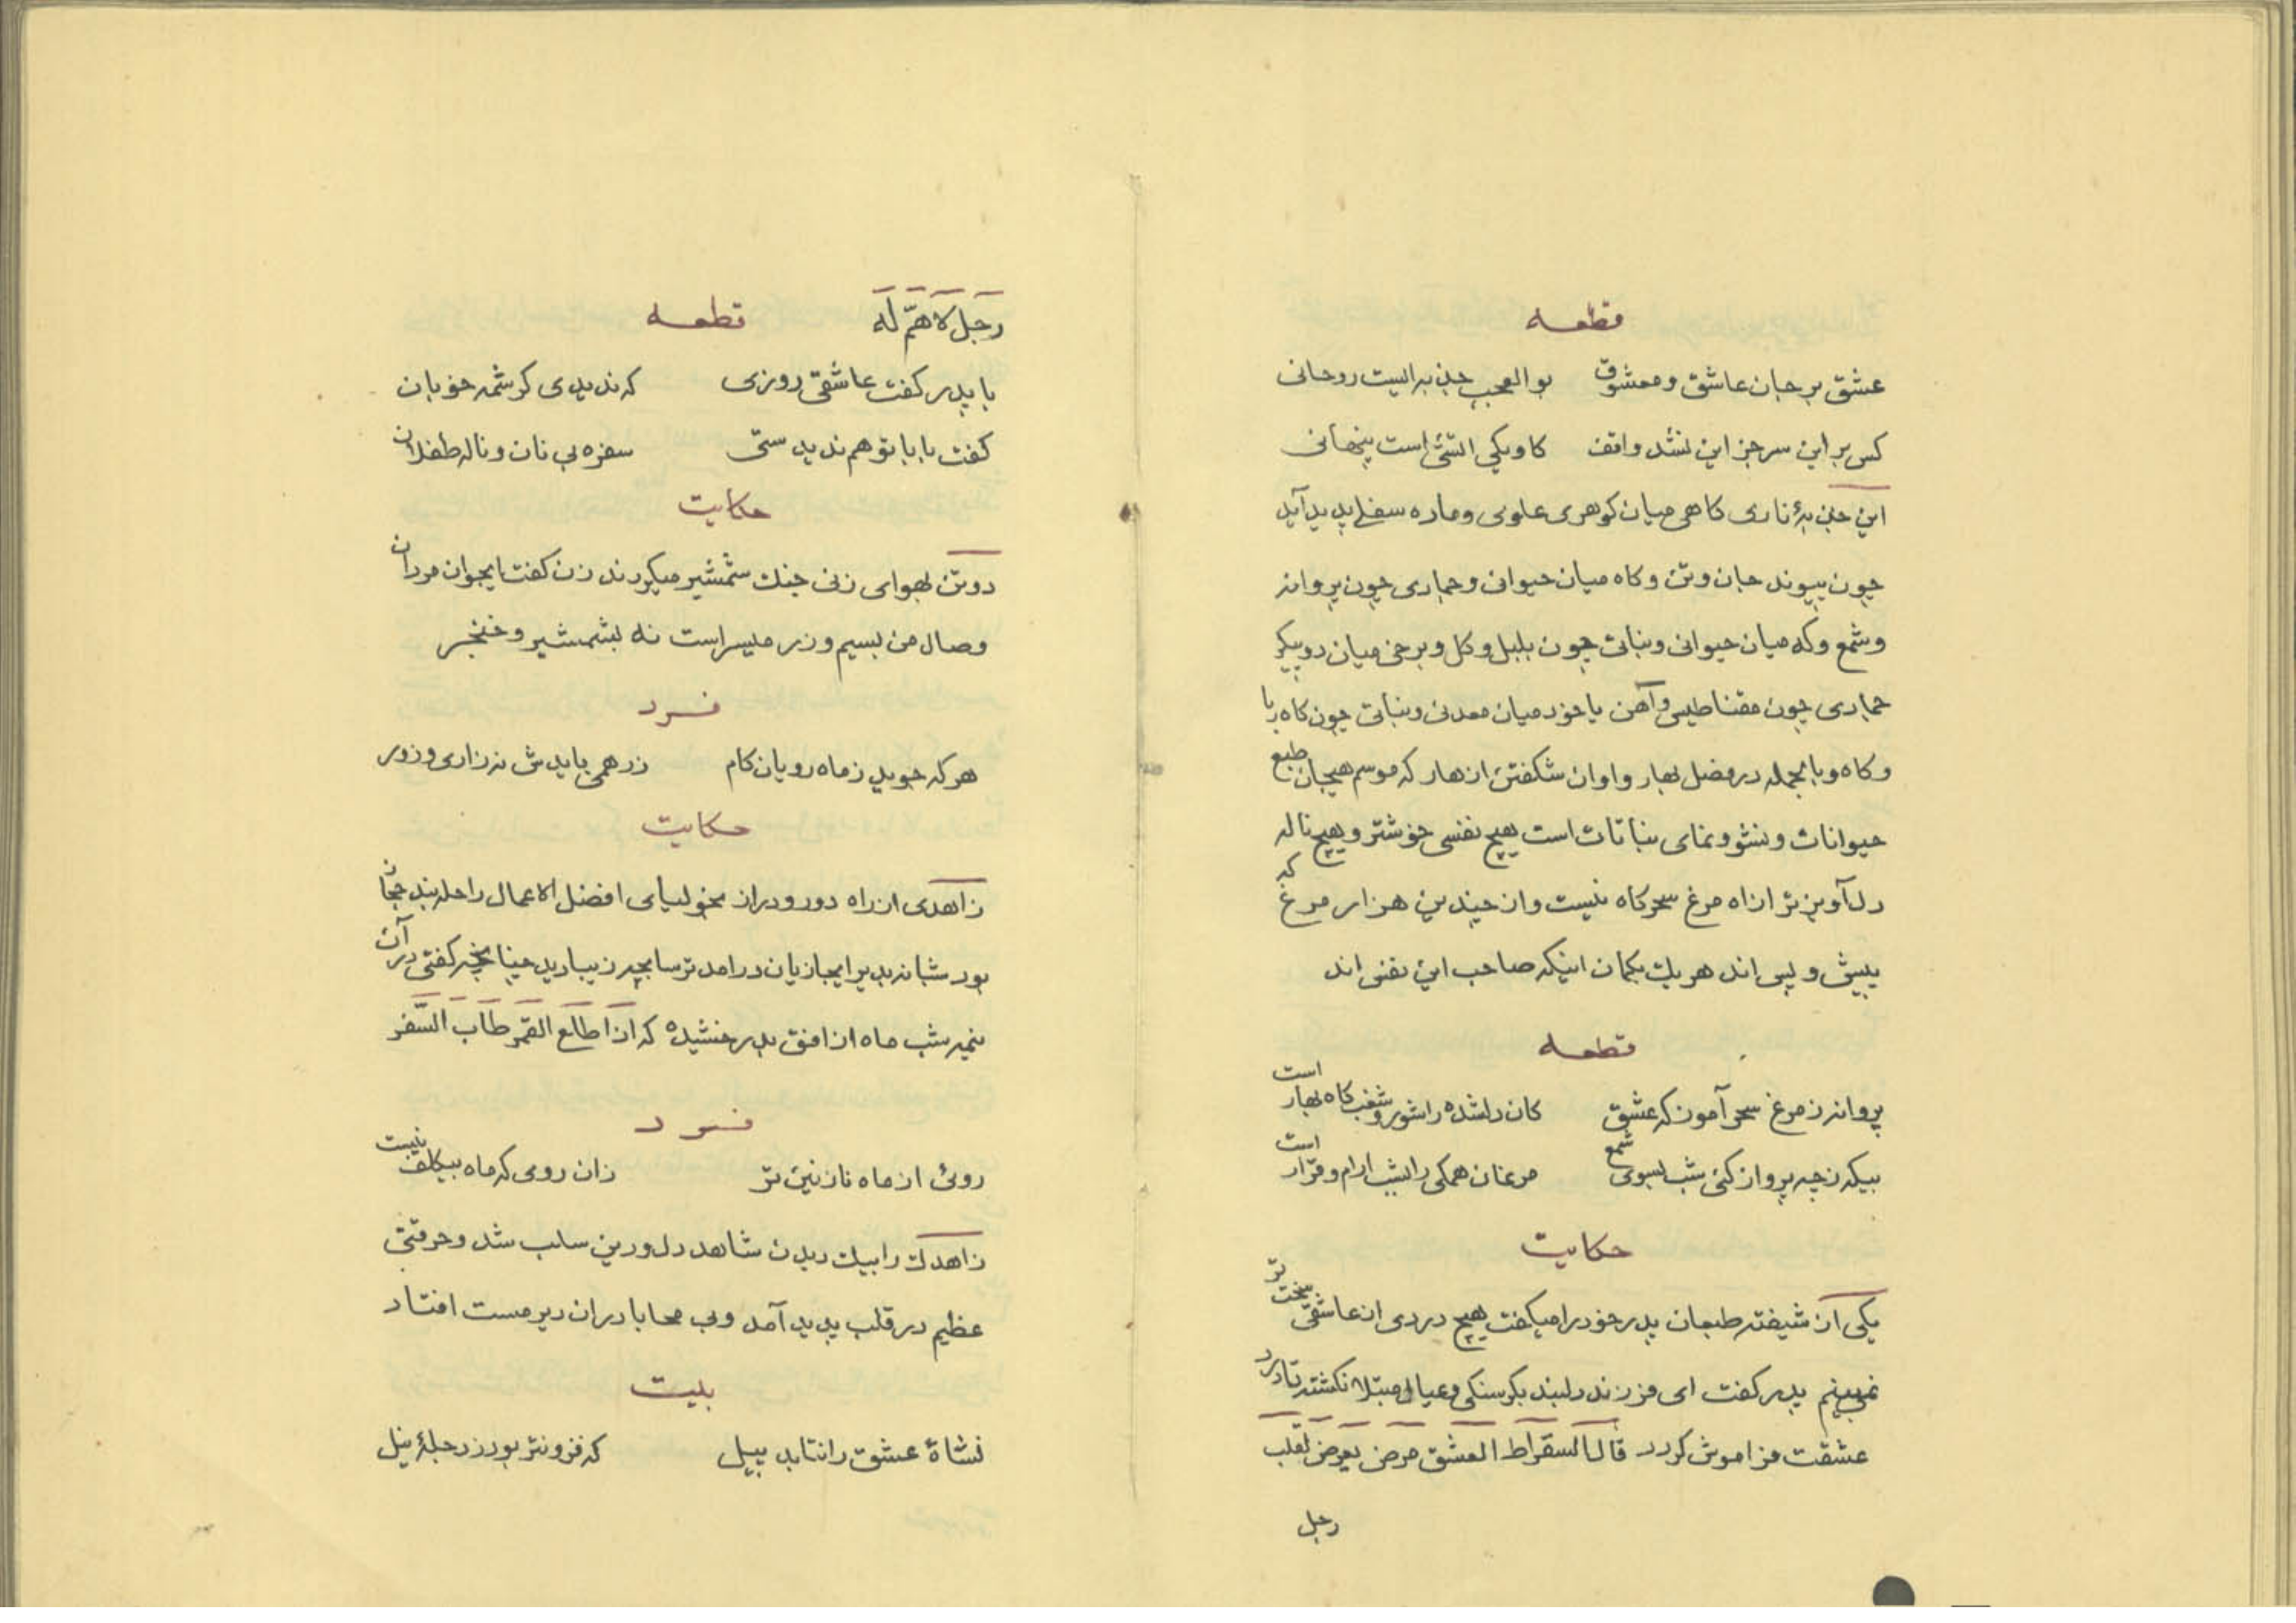 قطعه
عشق بر جان عاشق و معشوق بو العجب جذبه ایست روحانی
کس بر این سر جز این نشد واقف کاو یکی آتشی است پنهانی
این جذبهٔ ناری کاهی میان کوهری علوی و ماده سفلی پدید آید
چون پیوند جان و تن و کاه میان حیوانی و جمادی چون پروانه
و شمع و که میان حیوانی و نباتی چون بلبل و کل و برخی میان دو پیکر
جمادی چون مقناطیس و آهن یا خود میان معدنی و نباتی چون کاه ربا
و کاه و بالجمله در فصل بهار و اوان شکفتن ازهار که موسم هیجان طبع
حیوانات و نشو و نمای نباتات است هیچ نفسی خوشتر و هیچ ناله
دل‌آویزتر از آه مرغ سحرکاه نیست و از چندین هزار مرغ که
پیش و پس اند هر یک بکمان اینکه صاحب این نفس اند
قطعه
پروانه ز مرغ سحر آموز که عشق کان دلشده را شور و شغب کاه بهار است
بیکه ز چه پرواز کنی شب بسوی شمع مرغان همکی را بشب ارام و قرار است
حکایت
یکی از شیفته طبعان پدر خود را میکفت هیچ دردی از عاشقی سخت تر
نمی‌بینم پدر کفت ای فرزند دلبند بکرسنکی و عیال مبتلا نکشته تا درد
عشقت فراموش کردد قال السقراط العشق مرض یعرض لقلب
رجل
رجل لا هم له قطعه
با پدر کفت عاشقی روزی که ندیدی کرشمه خوبان
کفت بابا تو هم ندیدستی سفره بی نان و ناله طفلان
حکایت
دو تن بهوای زنی جنك شمشیر میکردند زن کفت ایجوان مردان
وصال من بسیم و زر میسر است نه بشمشیر و خنجر
فرد
هر که جوید ز ماه رویان کام زر همی بایدش نه زاری و زور
حکایت
زاهدی از راه دور و دراز بخولیای افضل الاعمال راحله بند حجاز
بود شبانه بدیر ایجازیان درامد ترسا بچه زیبا دید چنانچه کفتی در آن
نیمه شب ماه از افق بدر خشیده که اذا طالع القمر طاب السفر
فرد
روئی از ماه نازنین تر زان روی که ماه بیکلف نیست
زاهدك را بیك دیدن شاهد دل و دین سلب شد و حرقتی
عظیم در قلب پدید آمد و بی محابا در ان دیر مست افتاد
بیت
نشاة عشق را نتابد پیل که فزونتر بود ز دجلهٔ نیل